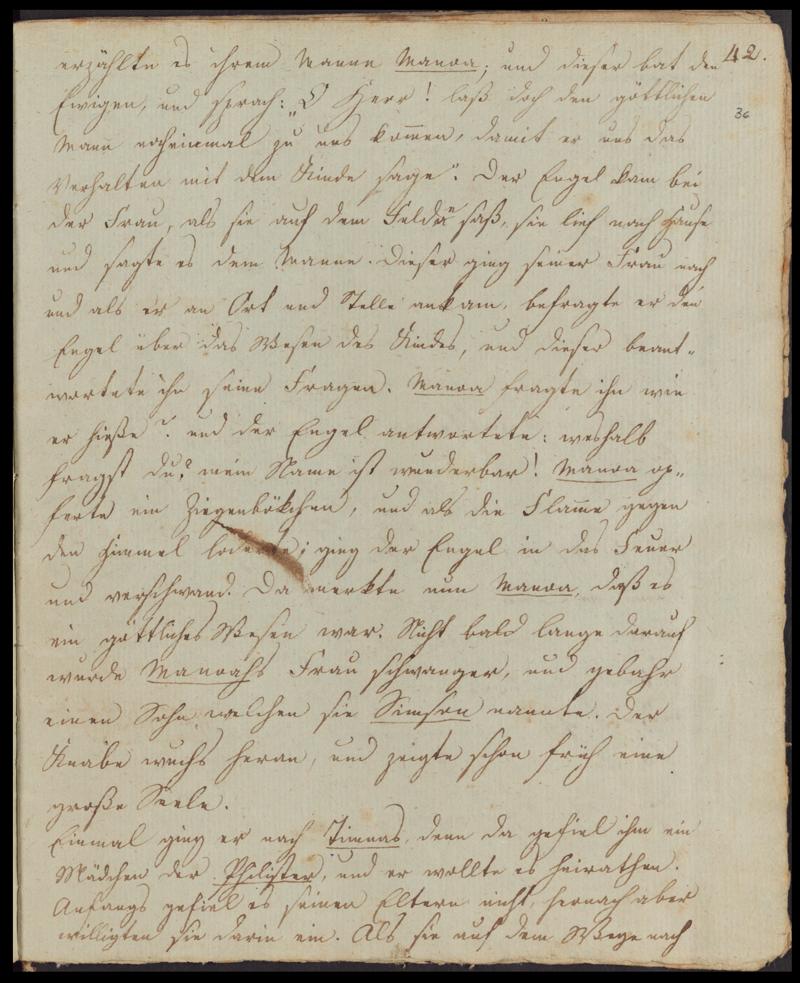 42.
36
erzählte es ihrem Manne Manoa; und dieser bat den
Ewigen, und sprach: „O Herr! laß doch den göttlichen
Mann nocheinmal zu uns kom̅en, damit er uns das
Verhalten mit dem Kinde sage“. Der Engel kam bei
der Frau, als sie auf dem Felde saß, sie lief nach Hause
und sagte es dem Manne. Dieser ging seiner Frau nach
und als er an Ort und Stelle ankam, befragte er den
Engel über das Wesen des Kindes, und dieser beant-
wortete ihn seine Fragen. Manoa fragte ihn wie
er hieße? und der Engel antwortete: weshalb
fragst du? mein Name ist wunderbar! Manoa op-
ferte ein Ziegenbökchen, und als die Flam̅e gegen
den Himmel loderte; ging der Engel in das Feuer
und verschwand. Da merkte nun Manoa, daß es
ein göttliches Wesen war. Nicht bald lange darauf
wurde Manoahs Frau schwanger, und gebahr
einen Sohn welchen sie Simson nannte. Der
Knabe wuchs heran, und zeigte schon früh eine
große Seele.
Einmal ging er nach Timnas, denn da gefiel ihm ein
Mädchen der Philister, und er wollte es heirathen.
Anfangs gefiel es seinen Eltern nicht, hernach aber
willigten sie darin ein. Als sie auf dem Wege nach